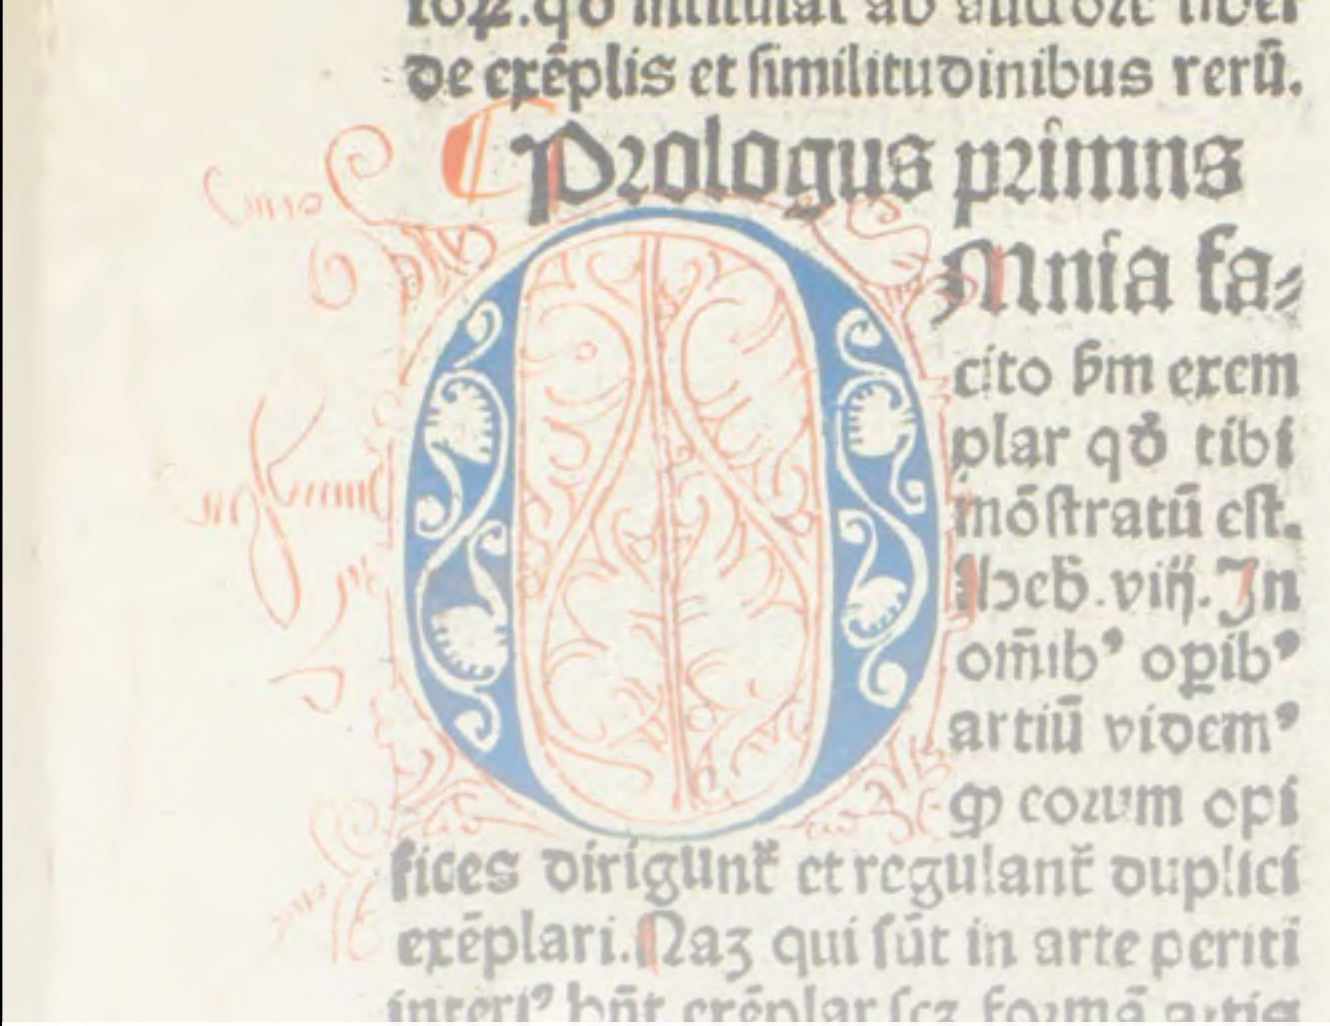 de exēplis et ſimilitudinibus rerū.
Prologus primns
OMnia fa⸗
cito ẜm exem
plar qđ tibi
mōſtratū eſt.
Heb̄. viij. In
om̄ib⁹ oꝑib⁹
artiū videm⁹
ꝙ eorum opi
fices dirigunt̄ et regulant̄ duplici
exēplari. Naꝫ qui ſūt in arte periti